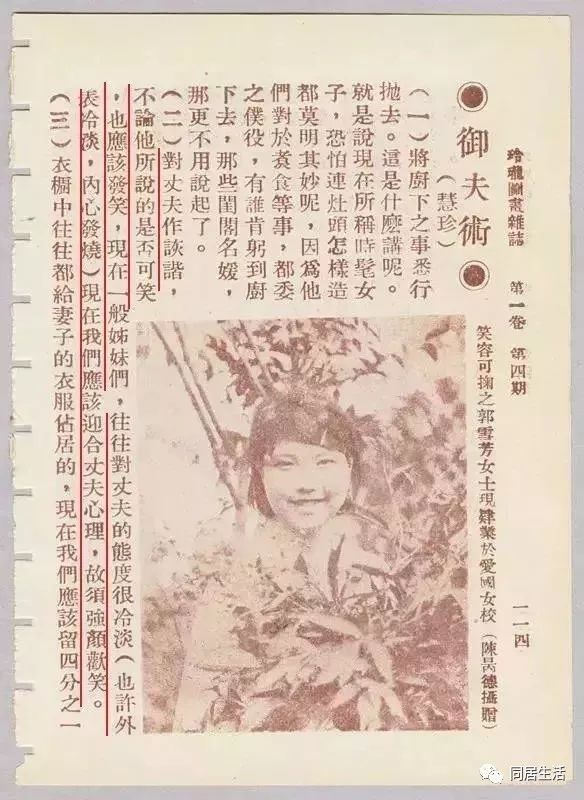 玲瓏圖畫雜誌 第一卷 第四期 一一四
笑容可掬之郭雪芳女士現肄業於愛國女校(陳昺德攝贈)
御夫術
(慧珍)
(一)將廚下之事悉行
拋去。這是什麽講呢。
就是說現在所稱時髦女
子,恐怕連灶頭怎樣造
都莫明其妙呢,因爲他
們對於食等事,都委
之僕役,有誰肯躬到廚
下去,那些閨閣名媛,
那更不用說起了。
(二)對丈夫作詼諧,
不論他所說的是否可笑
,也應該發笑,現在一般姊妹們,往往對丈夫的態度很冷淡(也許外
表冷淡,內心發燒)現在我們應該迎合丈夫心理,故須強顏歡笑。
(三)衣橱中往往都給妻子的衣服佔居的,現在我們應該留四分之一
同居生活